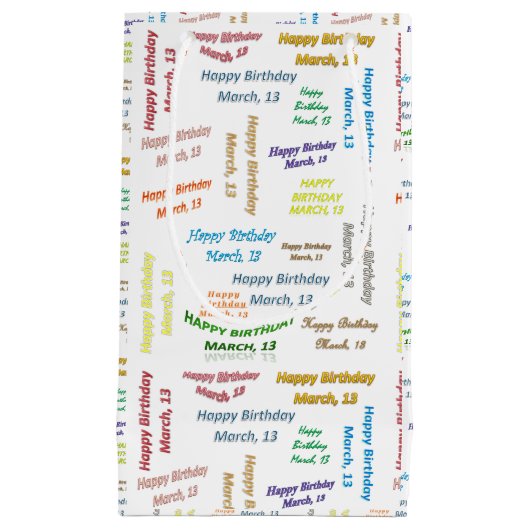 Happy Birthday
March, 13
Happy Birthday
March, 13
Happy Birthday
March, 13
Happy Birthday
March, 13
Happy
Birthday
March, 13
Happy Birthday
March, 13
Happy Birthday
March, 13
Happy Birthday
March, 13
Happy Birthday
March, 13
Happy Birthday
March, 13
HAPPY
BIRTHDAY
MARCH, 13
Happy Birthday
March, 13
Happy Birthday
March, 13
Happy Birthday
March, 13
Happy Birthday
March, 13
Happy Birthday
March, 13
Happy
Birthday
March, 13
HAPPY BIRTHDAY
MARCH, 13
Happy Birthday
March, 18
Happy Birthday
March, 13
Happy Birthday
March, 13
Happy Birthday
March, 13
Happy Birthday
March, 13
Happy
Birthday
March, 13
Happy Birthday
March, 13
Happy Birthday
March, 13
Happy Birthday
March, 13
Happy B
March